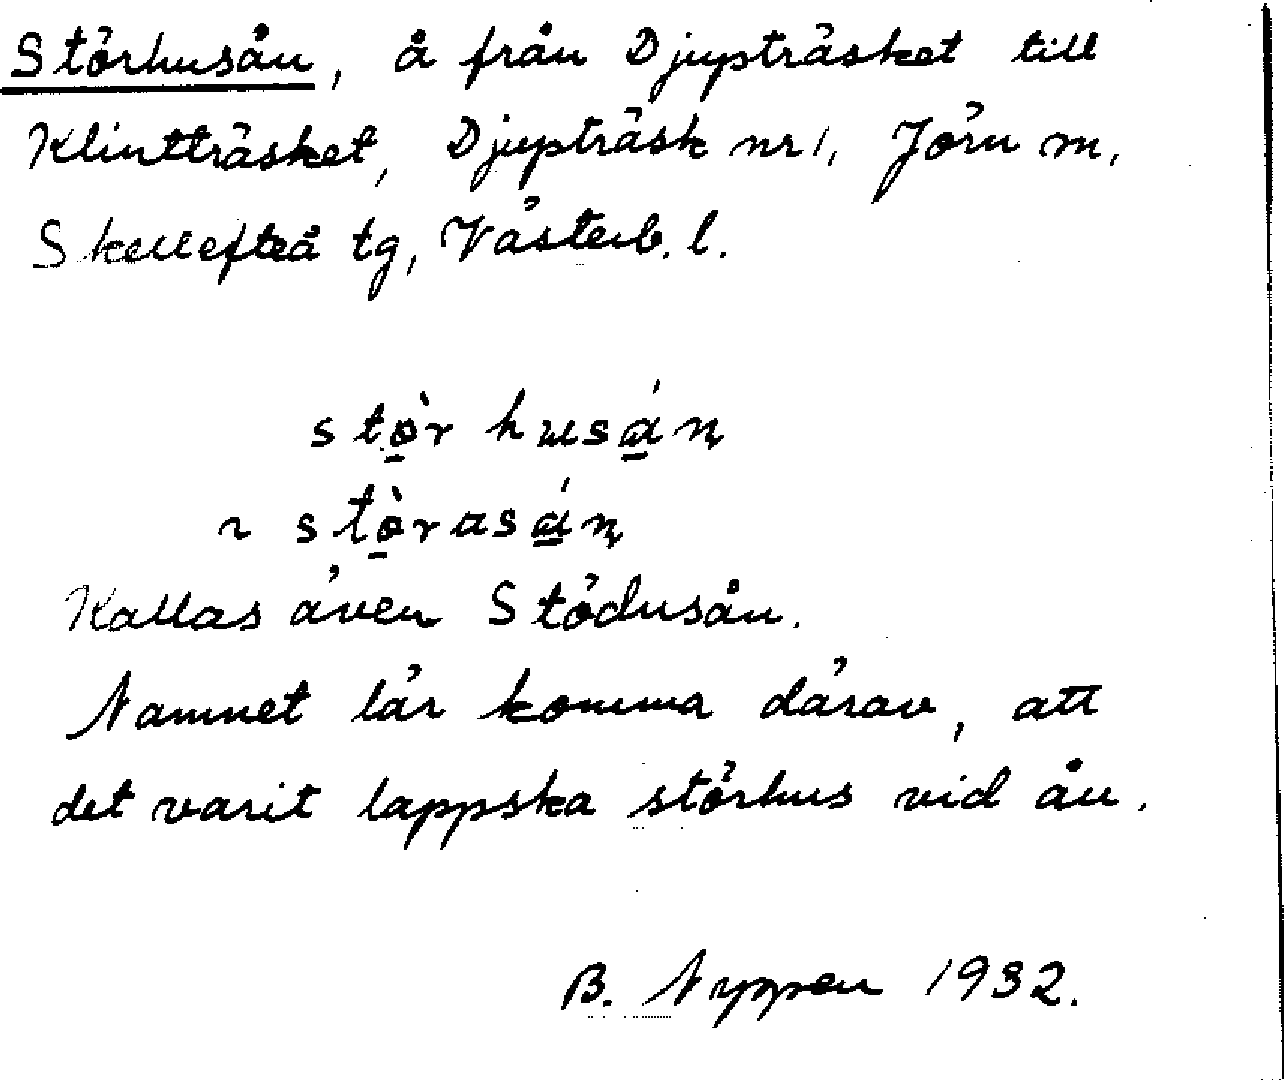 Störhusån, å från Djupträsket till
Klintträsket, Djupträsk nr 1, Jörn m,
Skellefteå tg, Västerb. l.
stò̠r husá̠n
~ stò̠rasá̠n
Kallas även Stödusån.
Namnet lär komma därav, att
det varit lappska störhus vid ån.
B. Nyppen 1932.